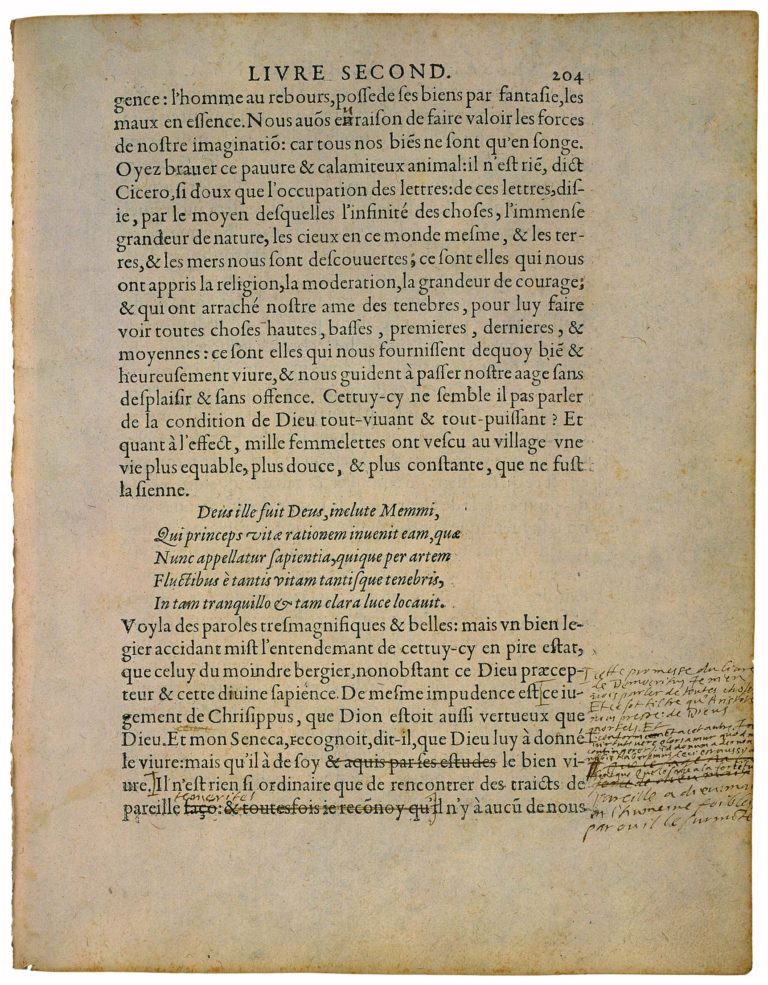 LIVRE SECOND. 204
gence: l'homme au rebours, possede ses biens par fantasie, les
maux en essence. Nous auõs en raison de faire valoir les forces
de nostre imaginatiõ: car tous nos biẽs ne sont qu'en songe.
Oyez brauer ce pauure & calamiteux animal: il n'est riẽ, dict
Cicero, si doux que l'occupation des lettres: de ces lettres, dis-
ie, par le moyen desquelles l'infinité des choses, l'immense
grandeur de nature, les cieux en ce monde mesme, & les ter-
res, & les mers nous sont descouuertes; ce sont elles qui nous
ont appris la religion, la moderation, la grandeur de courage;
& qui ont arraché nostre ame des tenebres, pour luy faire
voir toutes choses hautes, basses, premieres, dernieres, &
moyennes: ce sont elles qui nous fournissent dequoy biẽ &
heureusement viure, & nous guident à passer nostre aage sans
desplaisir & sans offence. Cettuy-cy ne semble il pas parler
de la condition de Dieu tout-viuant & tout-puissant? Et
quant à l'effect, mille femmelettes ont vescu au village vne
vie plus equable, plus douce, & plus constante, que ne fust
la sienne.
Deus ille fuit Deus, inclute Memmi,
Qui princeps vitæ rationem inuenit eam, quæ
Nunc appellatur sapientia, quique per artem
Fluctibus è tantis vitam tantisque tenebris,
In tam tranquillo & tam clara luce locauit.
Voyla des paroles tresmagnifiques & belles: mais vn bien le-
gier accidant mist l'entendemant de cettuy-cy en pire estat,
que celuy du moindre bergier, nonobstant ce Dieu præcep-
teur & cette diuine sapiẽce. De mesme impudence est ce iu-
gement de Chrisippus, que Dion estoit aussi vertueux que
Dieu. Et mon Seneca, recognoit, dit-il, que Dieu luy à donné
le viure: mais qu'il à de soy & aquis par ses estudes le bien vi-
ure. Il n'est rien si ordinaire que de rencontrer des traicts de
temerite
pareille façõ: & toutesfois ie recõnoy qu'il n'y à aucũ de nous
promesse du livre
de Democritus
parler de toutes choses
Et
de Dieus
mortels Et
pareille a dieu mais
en l'humeine foiblesse
par ou il le surmonte